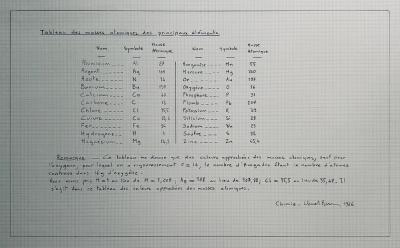 Tableau des masses atomiques des principaux éléments.
Nom Symbole Masse Atomique Nom Symbole Masse Atomique
Aluminium Al 27 Manganèse Mn 55
Argent Ag 108 Mercure Hg 200
Azote N 14 Or Au
Baryum Ba Oxygène O 16
Calcium Ca 40 Phosphore P 31
Carbone C 12 Plomb Pb 207
Chlore Cl 35,5 Potassium K 39
Cuivre Cu Silicium Si 28
Fer Fe 56 Sodium Na 23
Hydrogène H 1 Soufre S 32
Magnésium Mg Zinc Zn 65,4
Remarque Ce tableau ne donne que des valeurs approchées des masses atomiques, sauf pour
l'oxygène, pour lequel on a rigoureusement O = 16, le nombre d'Avogadro étant le nombre d'atomes
contenus dans 16 g d'oxygène.
H = 1 au lieu de H = 1,008, Ag = 108 au lieu de Cl = 35,5 au lieu de Il
s'agit dans ce tableau des valeurs approchées des masses atomiques.
Chimie